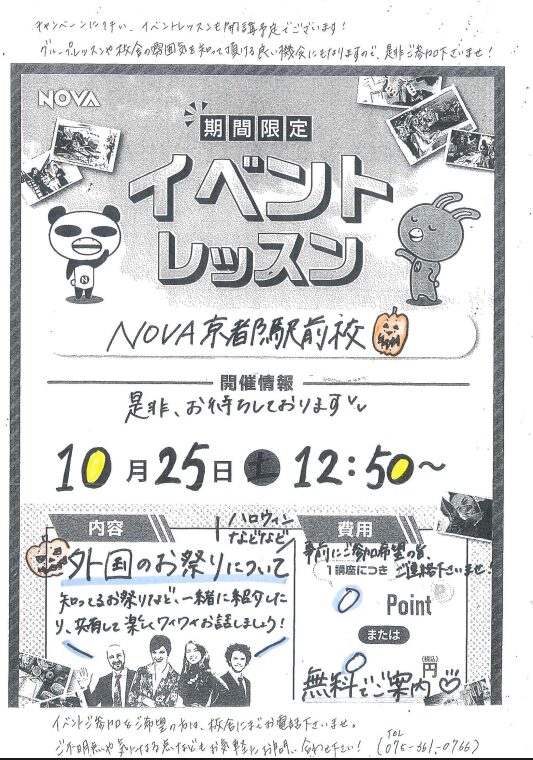 キャンペーンに伴い、イベントレッスンも開講予定でございます!
グループレッスンや校舎の雰囲気を知って頂ける良い機会にもなりますので、是非ご参加下さいませ!
NOVA
期間限定
イベント
レッスン
N
NOVA京都駅前校
開催情報
是非、お待ちしております
10月25日 土 12:50〜
内容
ハロウィン
などなど
外国のお祭りについて
知ってるお祭りなど、一緒に紹介した
り、共有して楽しくワイワイお話しましょう!
費用
事前にご参加希望の旨、
1講座につき ご連絡下さいませ!
0 Point
または
0 (税込)円
無料でご案内♡
イベントご参加をご希望の方は、校舎にまでお電話下さいませ。
ご不明点や気になる点などもお気軽にお問い合わせ下さい! (TEL 075-361-0766)